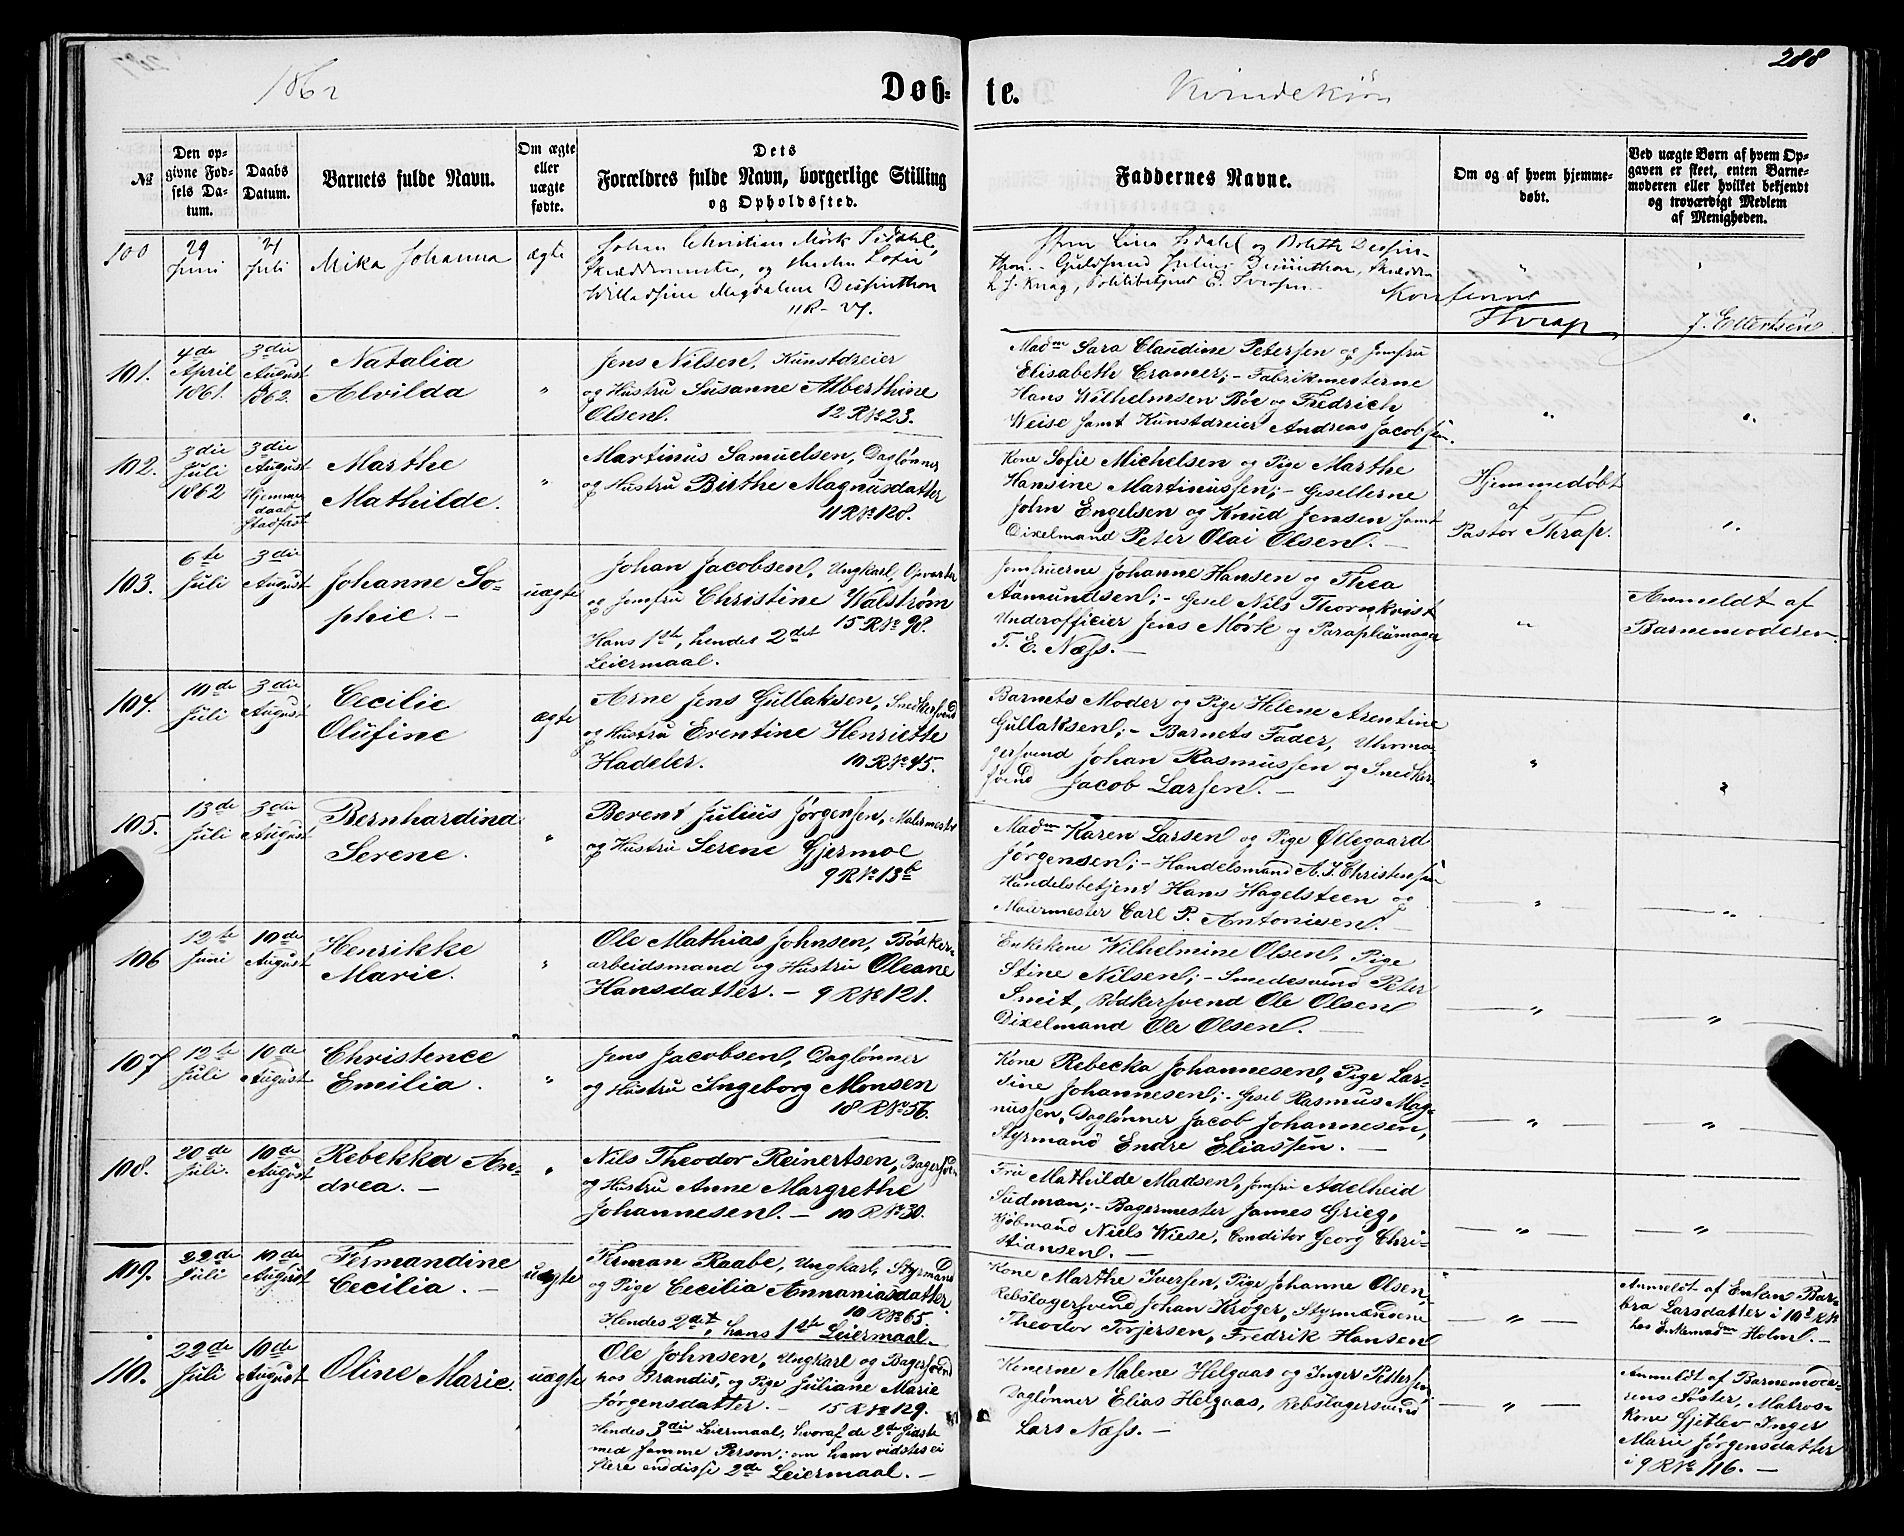 288
1862
Døb-
te.
Kvindekjøn
№
Den op-
givne Fød-
sels Da-
tum.
Daabs
Datum.
Barnets fulde Navn.
Om ægte
eller
uægte
fødte.
Dets
Forældres fulde Navn, borgerlige Stilling
og Opholdssted.
Faddernes Navne.
Om og af hvem hjemme-
døbt.
Ved uægte Børn af hvem Op-
gaven er skeet, enten Barne-
moderen eller hvilket bekjendt
og troværdigt Medlem
af Menigheden.
100
29
Juni
Juli
Mika Johanna
ægte
Johan Christian Mørk
og
Magdalene
11 R - 27.
og
Thrap
J. Ellertsen
101.
4de
April
1861.
3die
August
1862.
Natalia
Alvilda
"
Jens Nilsen, Kunstdreier
og Hustru Susanne Alberthine
Olsen. 12 R № 23.
Madm Sara Claudine Petersen og Jomfru
Elisabeth Cramer; - Fabrikmesterne
Hans Wilhelmsen Bøe og Fredrich
Weise samt Kunstdreier Andreas Jacobsen.
"
"
102.
3die
Juli
1862
3die
August
Hjemme
daab
stadfæst
Marthe
Mathilde.
"
Martinus Samuelsen, Daglønner
og Hustru Birthe Magnusdatter
11 R № 128.
Kone Sofie Michelsen og Pige Marthe
Hansine Martinussen; - Gesellerne
John Engelsen og Knud Jensen samt
Dixelmand Peter Olai Olsen. -
Hjemmedøbt
af
Pastor Thrap.
"
103.
6te
Juli
3die
August
Johanne So-
phie. -
uægte
Johan Jacobsen, Ungkarl, Opvarter
og Jomfru Christine Walstrøm
15 R № 98.
Hans 1ste, hendes 2det
Leiermaal.
Jomfruerne Johanne Hansen og Thea
Aamundsen; - Gesel Nils Thornkvist
Underofficier Jens Mørk og Parapleumager
T. E. Næss. -
"
Anmeldt af
Barnemoderen.
104.
10de
Juli
3die
August
Cecilie
Olufine
ægte
Arne Jens Gullaksen, Snedkersvend
og Hustru Erentine Henriette
Hadeler. 10 R № 45.
Barnets Moder og Pige Helene Arentine
Gullaksen; - Barnets Fader, Uhrma-
gersvend Johan Rasmussen og Snedker-
svend Jacob Larsen. -
"
"
105.
13de
Juli
3die
August
Bernhardina
Serene.
"
Berent Julius Jørgensen, Malermester
og Hustru Serene Gjermoe
9 R № 13b
Madm Karen Larsen og Pige Øllegaard
Jørgensen; - Handelsmand A. J. Christensen
Handelsbetjent Hans Hagelsteen og
Malermester Carl P. Antonisen.
"
"
106
12te
Juni
10de
August
Henrikke
Marie.
"
Ole Mathias Johnsen, Bødker-
arbeidsmand og Hustru Oleane
Hansdatter. - 9 R № 121.
Enkekone Wilhelmine Olsen, Pige
Stine Nilsen; - Smedesvend Peter
Smit, Bødkersvend Ole Olsen
Dixelmand Ole Olsen. -
"
"
107
12te
Juli
10de
August
Christence
Emilia.
"
Jens Jacobsen, Daglønner
og Hustru Ingeborg Monsen
18 R № 56.
Kone Rebecka Johannesen, Pige Lar-
sine Johannesen; - Gesel Rasmus Mag-
nussen, Daglønner Jacob Johannesen,
Styrmand Endre Eliassen. -
"
"
108.
20de
Juli.
10de
August
Rebekka An-
drea. -
"
Nils Theodor Reinertsen, Bagersvend
og Hustru Anne Margrethe
Johannesen. - 10 R № 30.
Fru Mathilde Madsen, Jomfru Adelheid
Sudman; - Bagermester James Grieg,
Kjøbmand Niels Wiese, Conditor Georg Chri-
stiansen. -
"
"
109.
22de
Juli
10de
August
Fermandine
Cecilia. -
uægte
Firman Raabe, Ungkarl, Styrmand
og Pige Cecilia Annaniasdatter.
10 R № 65.
Hendes 2det, hans 1ste Leiermaal.
Kone Marthe Iversen, Pige Johanne Olsen,
Rebslagersvend Johan Krøger, Styrmændene
Theodor Torjersen, Fredrik Hansen
"
Anmeldt af Enken Bar-
bra Larsdatter i 10de R №
hos Enkemadm Holm. -
110.
22de
Juli
10de
August
Oline Marie.
uægte
Ole Johnsen, Ungkarl og Bagersvend
hos Brandis, og Pige Juliane Marie
Jørgensdatter. - 15 R № 129.
Hendes 3die Leiermaal, hvoraf de 2de sidste
med samme Person; om ham vidstes ei
flere end disse 2de Leiermaal. -
Konerne Malene Helgaas og Inger Pettersen;
Daglønner Elias Helgaas, Rebslagersvend
Lars Næss. -
"
Anmeldt af Barnemode-
rens Søster, Matros-
Kone Gjetlev Inger
Marie Jørgensdatter
i 9 R № 116. -